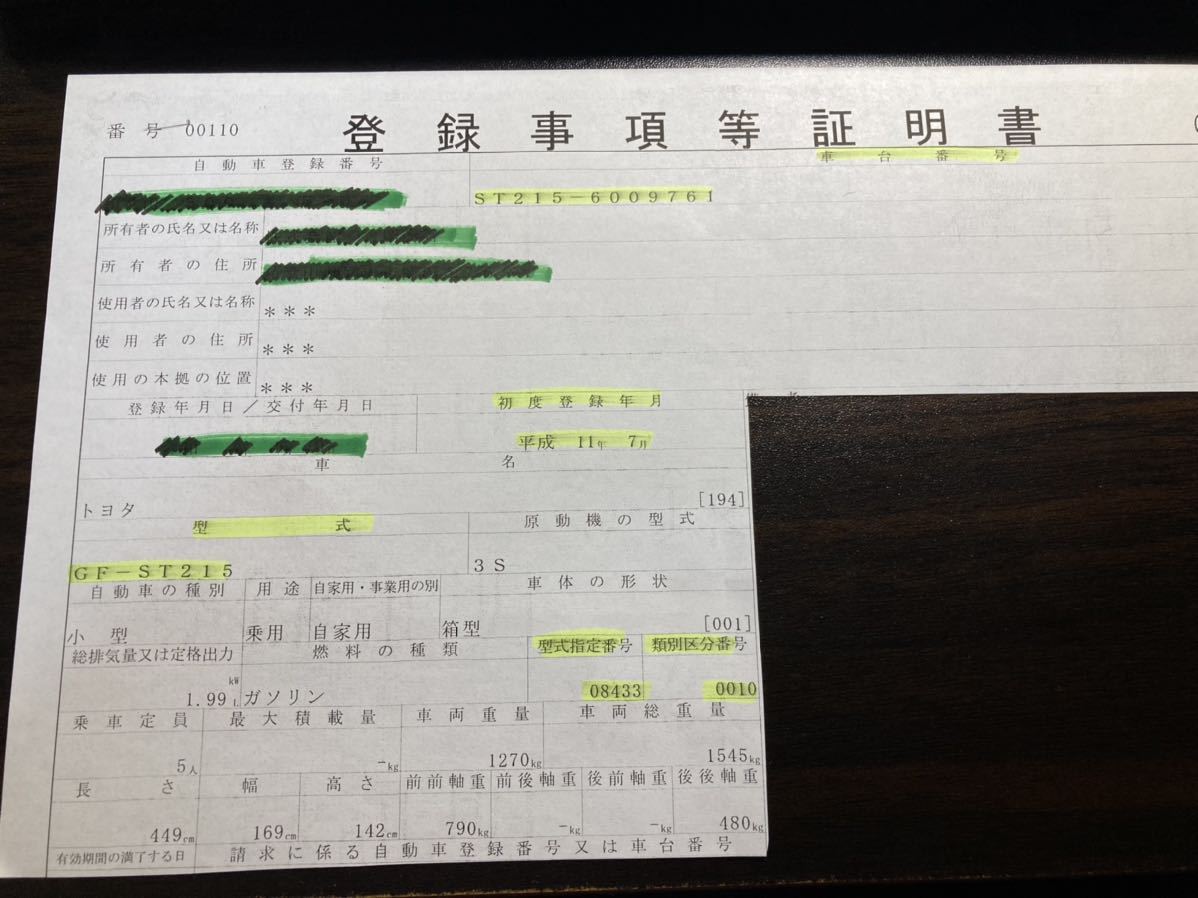 番号 00110
登録事項等証明書
自動車登録番号 車台番号
ST215-6009761
所有者の氏名又は名称
所有者の住所
使用者の氏名又は名称 ***
使用者の住所 ***
使用の本拠の位置 ***
登録年月日/交付年月日 初度登録年月
平成 11年 7月
車名
トヨタ [194]
型式 原動機の型式
GF-ST215 3S
自動車の種別 用途 自家用・事業用の別 車体の形状
小型 乗用 自家用 箱型 [001]
総排気量又は定格出力 燃料の種類 型式指定番号 類別区分番号
kW
1.99 L ガソリン 08433 0010
乗車定員 最大積載量 車両重量 車両総重量
5人 -kg 1270kg 1545kg
長さ 幅 高さ 前前軸重 前後軸重 後前軸重 後後軸重
449cm 169cm 142cm 790kg -kg -kg 480kg
有効期間の満了する日 請求に係る自動車登録番号又は車台番号